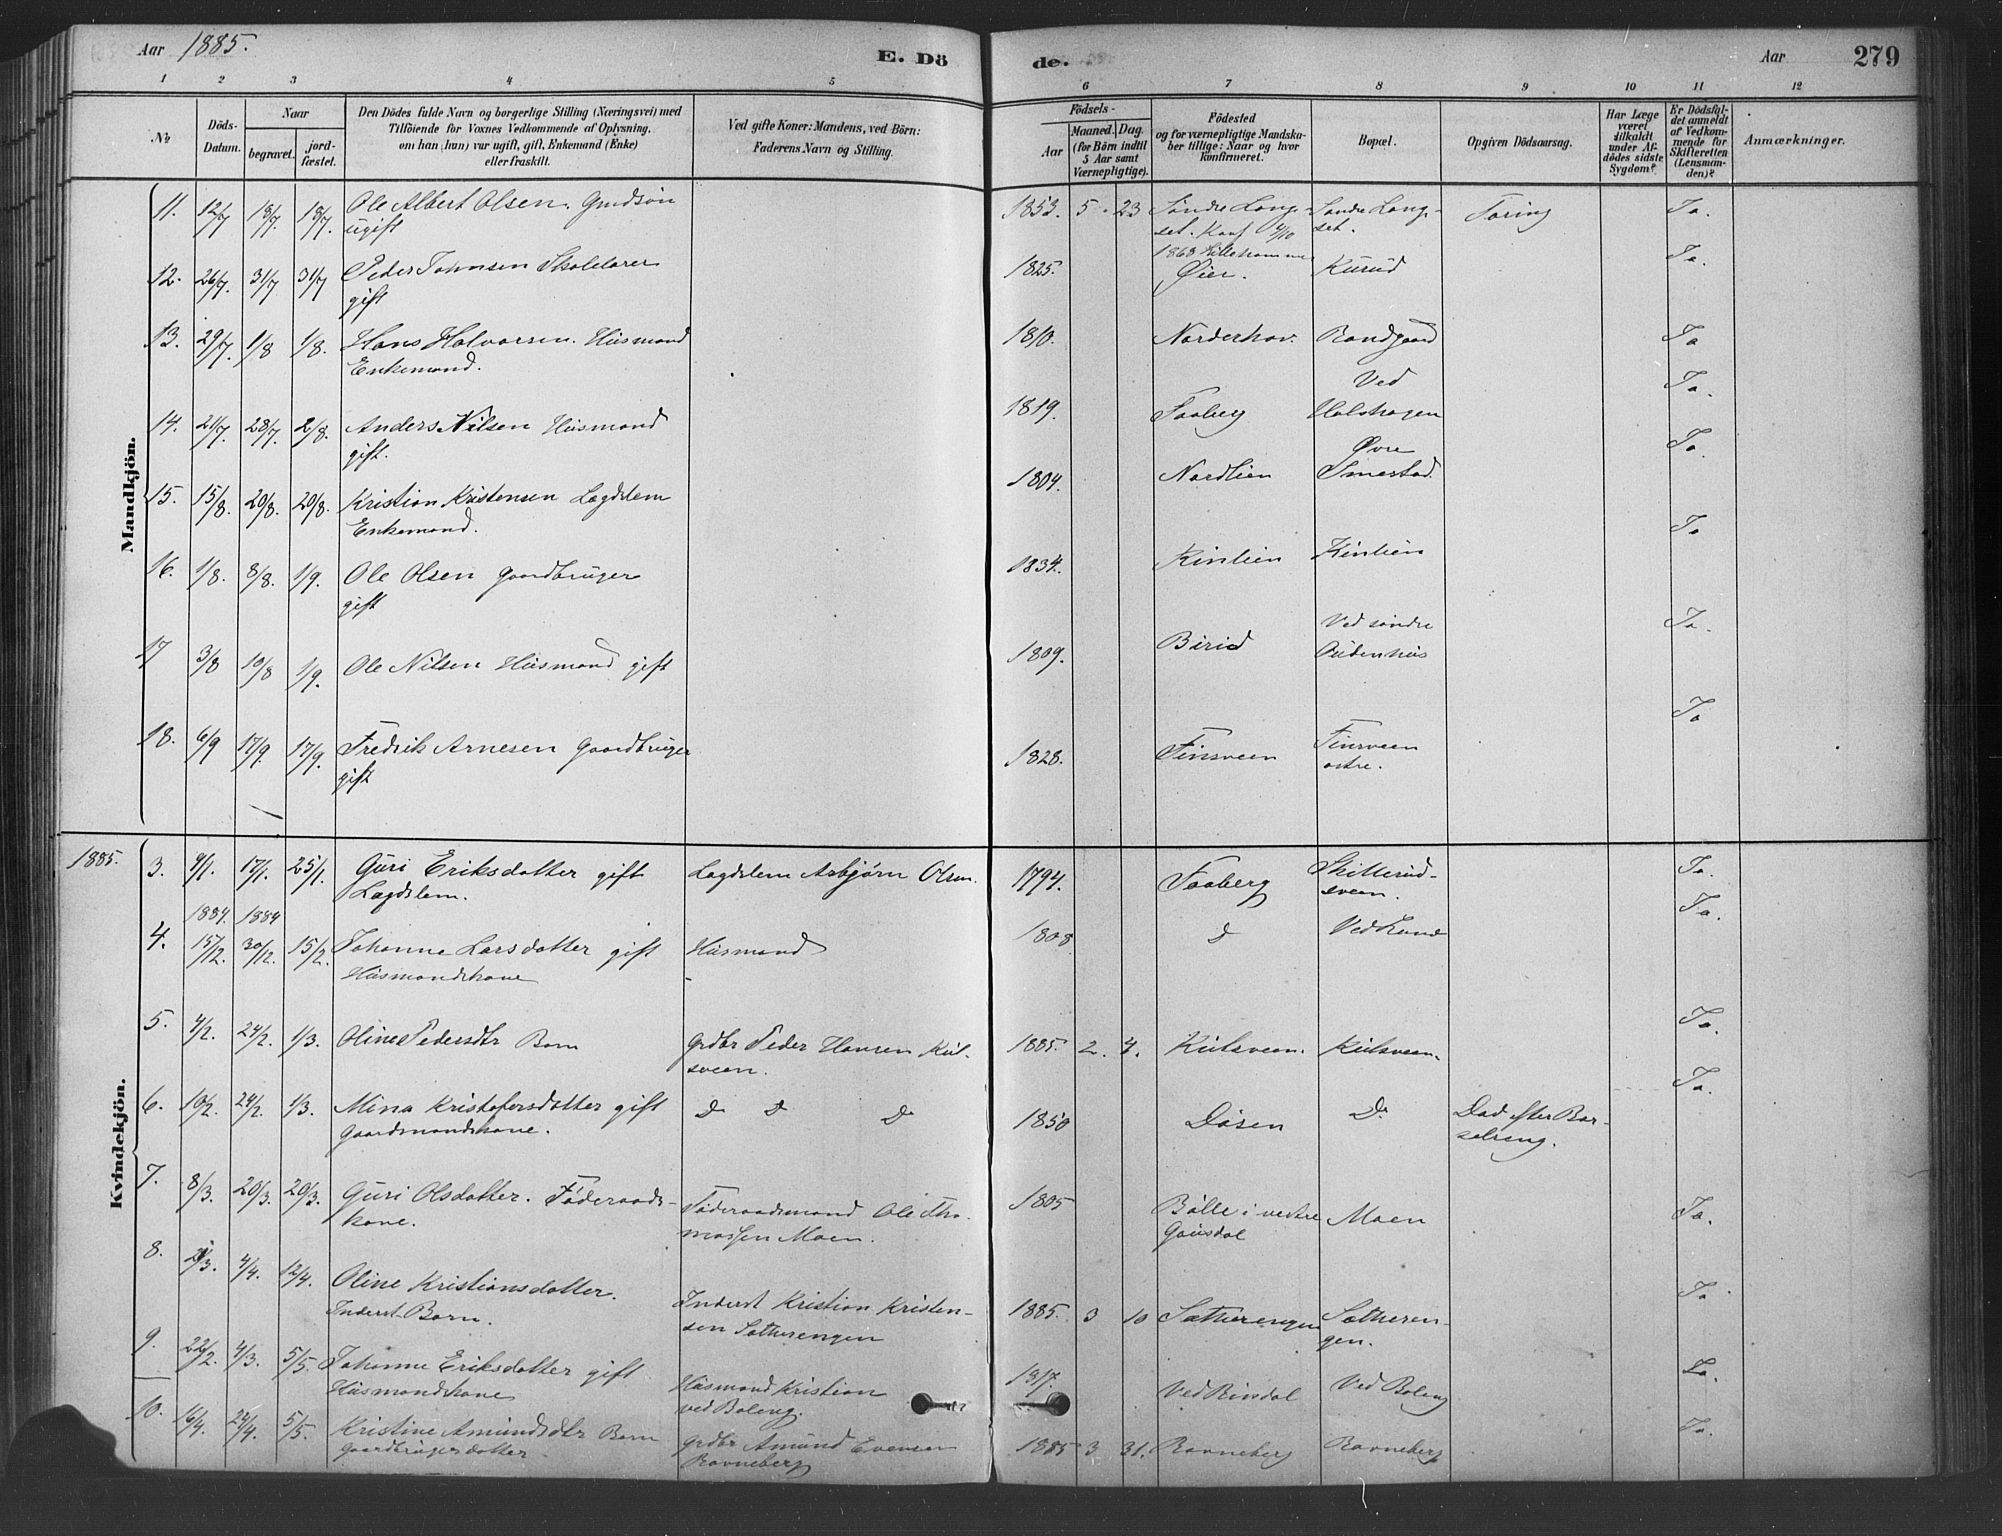 Aar 1885.
E. Dö
de.
Aar
279
1 2 3 4 5 6 7 8 9 10 11 12
No
Döds-
Datum.
Naar
begravet.
jord-
fæstet.
Den Dödes fulde Navn og borgerlige Stilling (Næringsvei) med
Tilföiende for Voxnes Vedkommende af Oplysning,
om han (hun) var ugift, gift, Enkemand (Enke)
eller fraskilt.
Ved gifte Koner: Mandens, ved Börn:
Faderens Navn og Stilling.
Födsels-
Aar
Maaned. Dag.
(for Börn indtil
5 Aar samt
Værnepligtige).
Födested
og for værnepligtige Mandska-
ber tillige: Naar og hvor
konfirmeret.
Bopæl.
Opgiven Dödsaarsag.
Har Læge
været
tilkaldt
under Af-
dödes sidste
Sygdom?
Er Dödsfal-
det anmeldt
af Vedkom-
mende for
Skifteretten
(Lensman-
den)?
Anmærkninger.
Mandkjön.
11. 12/7 18/7 18/7 Ole Albert Olsen. Grdsön 1853. 5. 23 Söndre Lang- Söndre Lang- Tæring Ja.
ugift set. Konf 4/10 set.
1868 Lillehammer
12. 26/7 31/7 31/7 Peder Johnsen Skolelærer 1825. Øier. Kurud Ja.
gift
13. 29/7. 1/8 1/8. Hans Halvorsen. Husmand 1810. Norderhov. Randgaard Ja
Enkemand.
Ved
14. 21/7. 28/7 2/8. Anders Nilsen Husmand 1819. Faaberg Holshagen Ja.
gift.
Øvre
15. 15/8. 20/8. 20/8. Kristian Kristensen Lægdslem 1804. Nordlien Smestad. Ja.
Enkemand.
16. 1/8. 8/8. 1/9. Ole Olsen Gaardbruger 1834. Kinlien Kinlien Ja
gift
Ved söndre
17 3/8 10/8 1/9. Ole Nilsen Husmand gift 1809. Birid Audenhus Ja.
18. 6/9 17/9. 17/9. Fredrik Arnesen Gaardbruger 1828. Finsveen Finsveen Ja
gift östre.
Kvindekjön.
1885. 3. 9/1. 17/1. 25/1. Guri Eriksdatter gift Lægdslem Asbjørn Olsen. 1794. Faaberg Skitterud- Ja.
Lægdslem. sveen.
1884. 1884
4. 15/12. 30/12. 15/2. Johanne Larsdatter gift Husmand 1808 D Ved Lund Ja.
Husmandskone -
5. 4/2. 24/2. 1/3. Oline Pedersdtr Barn Grdbr Peder Hansen Kul- 1885. 2. 4. Kulsveen. Kulsveen. Ja.
sveen.
6. 10/2. 24/2. 1/3. Mina Kristofersdatter gift D D D 1850 Dösen D. Död efter Bar- Ja.
Gaardmandskone. selseng.
7. 8/3. 20/3. 20/3. Guri Olsdatter. Föderaads- Föderaadsmand Ole Tho- 1805 Bölle i vestre Moen Ja.
kone. massen Moen. Gausdal
8. 4/4. 12/4. Oline Kristiansdatter. Inderst Kristian Kristen- 1885. 3 10 Sætherengen Sætheren- Ja.
Inderst Barn. sen Sætherengen gen.
9. 22/2. 4/3. 5/5. Johanne Eriksdatter gift Husmand Kristian 1817. Ved Rindal Ved Boleng Ja.
Husmandskone ved Boleng.
10. 16/4. 24/4. 5/5. Kristine Amundsdtr Barn Grdbr Amund Evensen 1885 3 31. Ravneberg Ravneberg Ja.
Gaardbrugerdatter Ravneberg